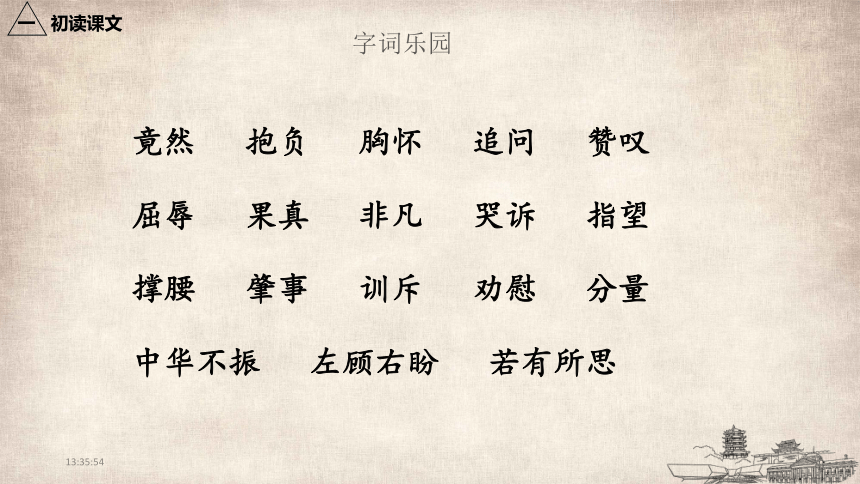 一 初读课文
字词乐园
竟然 抱负 胸怀 追问 赞叹
屈辱 果真 非凡 哭诉 指望
撑腰 肇事 训斥 劝慰 分量
中华不振 左顾右盼 若有所思
13:35:54